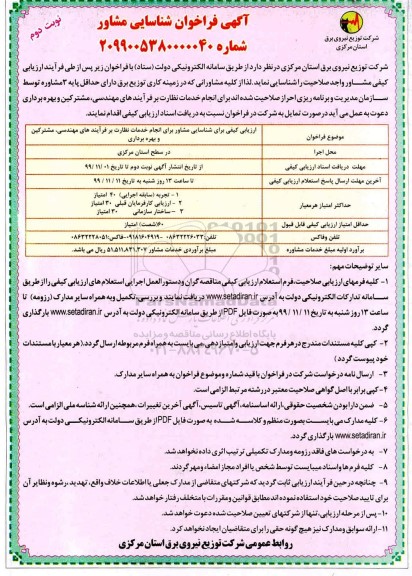 آگهی فراخوان شناسایی مشاور
شماره ۲۰۹۹۰۰۵۳۸۰۰۰۰۰۴۰
نوبت دوم
شرکت توزیع نیروی برق
استان مرکزی
شرکت توزیع نیروی برق استان مرکزی در نظر دارد از طریق سامانه الکترونیکی دولت (ستاد) با فراخوان زیر پس از طی فرآیند ارزیابی
کیفی مشاور واجد صلاحیت را شناسایی نماید. لذا از کلیه مشاورانی که در زمینه کاری توزیع برق دارای حداقل پایه ۳ مشاوره توسط
سازمان مدیریت و برنامه ریزی احراز صلاحیت شده اند برای انجام خدمات نظارت بر فرآیند های مهندسی، مشترکین و بهره برداری
دعوت به عمل می آید در صورت تمایل به شرکت در فراخوان نسبت به دریافت اسناد ارزیابی کیفی اقدام نمایند.
موضوع فراخوان
ارزیابی کیفی برای شناسایی مشاور برای انجام خدمات نظارت بر فرآیند های مهندسی، مشترکین و بهره برداری
محل اجرا
در سطح استان مرکزی
مهلت دریافت اسناد ارزیابی کیفی
از تاریخ انتشار آگهی نوبت دوم تا تاریخ ۰۱/ ۱۱/ ۹۹
آخرین مهلت ارسال پاسخ استعلام ارزیابی کیفی
تا ساعت ۱۳ روز شنبه به تاریخ ۱۱ / ۱۱ / ۹۹
حداکثر امتیاز هر معیار
۱ - تجربه (سابقه اجرایی) ۴۰ امتیاز
۲ - ارزیابی کارفرمایان قبلی ۳۰ امتیاز
۳ - ساختار سازمانی ۳۰ امتیاز
حداقل امتیاز ارزیابی کیفی قابل قبول
۶۰(شصت) امتیاز
تلفن و فاکس
تلفن: ۰۸۶۳۳۲۲۶۰۳۳ - ۰۹۱۸۱۶۰۴۹۱۹ -فاکس: ۰۸۶۳۳۲۲۸۰۵۱
برآورد اولیه مبلغ خدمات مشاوره
مبلغ برآوردی خدمات مشاور ۵۱،۵۱۱،۸۳۱،۳۰۷ ریال می باشد.
سایر توضیحات مهم:
۱- کلیه فرمهای ارزیابی صلاحیت، فرم استعلام ارزیابی کیفی مناقصه گران و دستورالعمل اجرایی استعلام های ارزیابی کیفی را از طریق
سامانه تدارکات الکترونیکی دولت به آدرس www.setadiran.ir دریافت نمایند و بررسی، تکمیل و به همراه سایر مدارک (رزومه) تا
ساعت ۱۳ روز شنبه به تاریخ ۱۱ / ۱۱ / ۹۹ به صورت فایل PDF از طریق سامانه الکترونیکی دولت به آدرس www.setadiran.ir بارگذاری
گردد.
۲- کپی کلیه مستندات مندرج در هر فرم جهت ارزیابی و امتیاز دهی، می بایست به همراه فرم مربوطه ارسال گردد. (هر معیار با مستندات
خود پیوست گردد)
۳- ارسال نامه درخواست شرکت در فراخوان با قید شماره و موضوع فراخوان به همراه سایر مدارک.
۴- کپی برابر با اصل گواهی صلاحیت معتبر در رشته مرتبط الزامی است.
۵- ضمن دارا بودن شخصیت حقوقی، ارائه اساسنامه، آگهی تاسیس، آگهی آخرین تغییرات، همچنین ارائه شناسه ملی الزامی است.
۶- کلیه مدارک می بایست بصورت منظم و کلاسه شده به صورت فایل PDF از طریق سامانه الکترونیکی دولت به آدرس
www.setadiran.ir بارگذاری گردد.
۷- به درخواست های فاقد رزومه و مدارک تکمیلی ترتیب اثری داده نخواهد شد.
۸- کلیه فرم ها و اسناد میبایست توسط شخص یا افراد مجاز امضاء و مهر گردند.
۹- چنانچه در حین فرآیند ارزیابی ثابت گردید که شرکتهای متقاضی از مدارک جعلی یا اطلاعات خلاف واقع، تهدید، رشوه و نظایر آن
برای تایید صلاحیت خود استفاده نموده اند مطابق قوانین و مقررات با متخلف رفتار خواهد شد.
۱۰- پس از مرحله ارزیابی، تنها از شرکتهای تعیین صلاحیت شده دعوت خواهد شد.
۱۱- ارائه سوابق و مدارک نیز هیچ گونه حقی را برای متقاضیان ایجاد نخواهد کرد.
روابط عمومی شرکت توزیع نیروی برق استان مرکزی